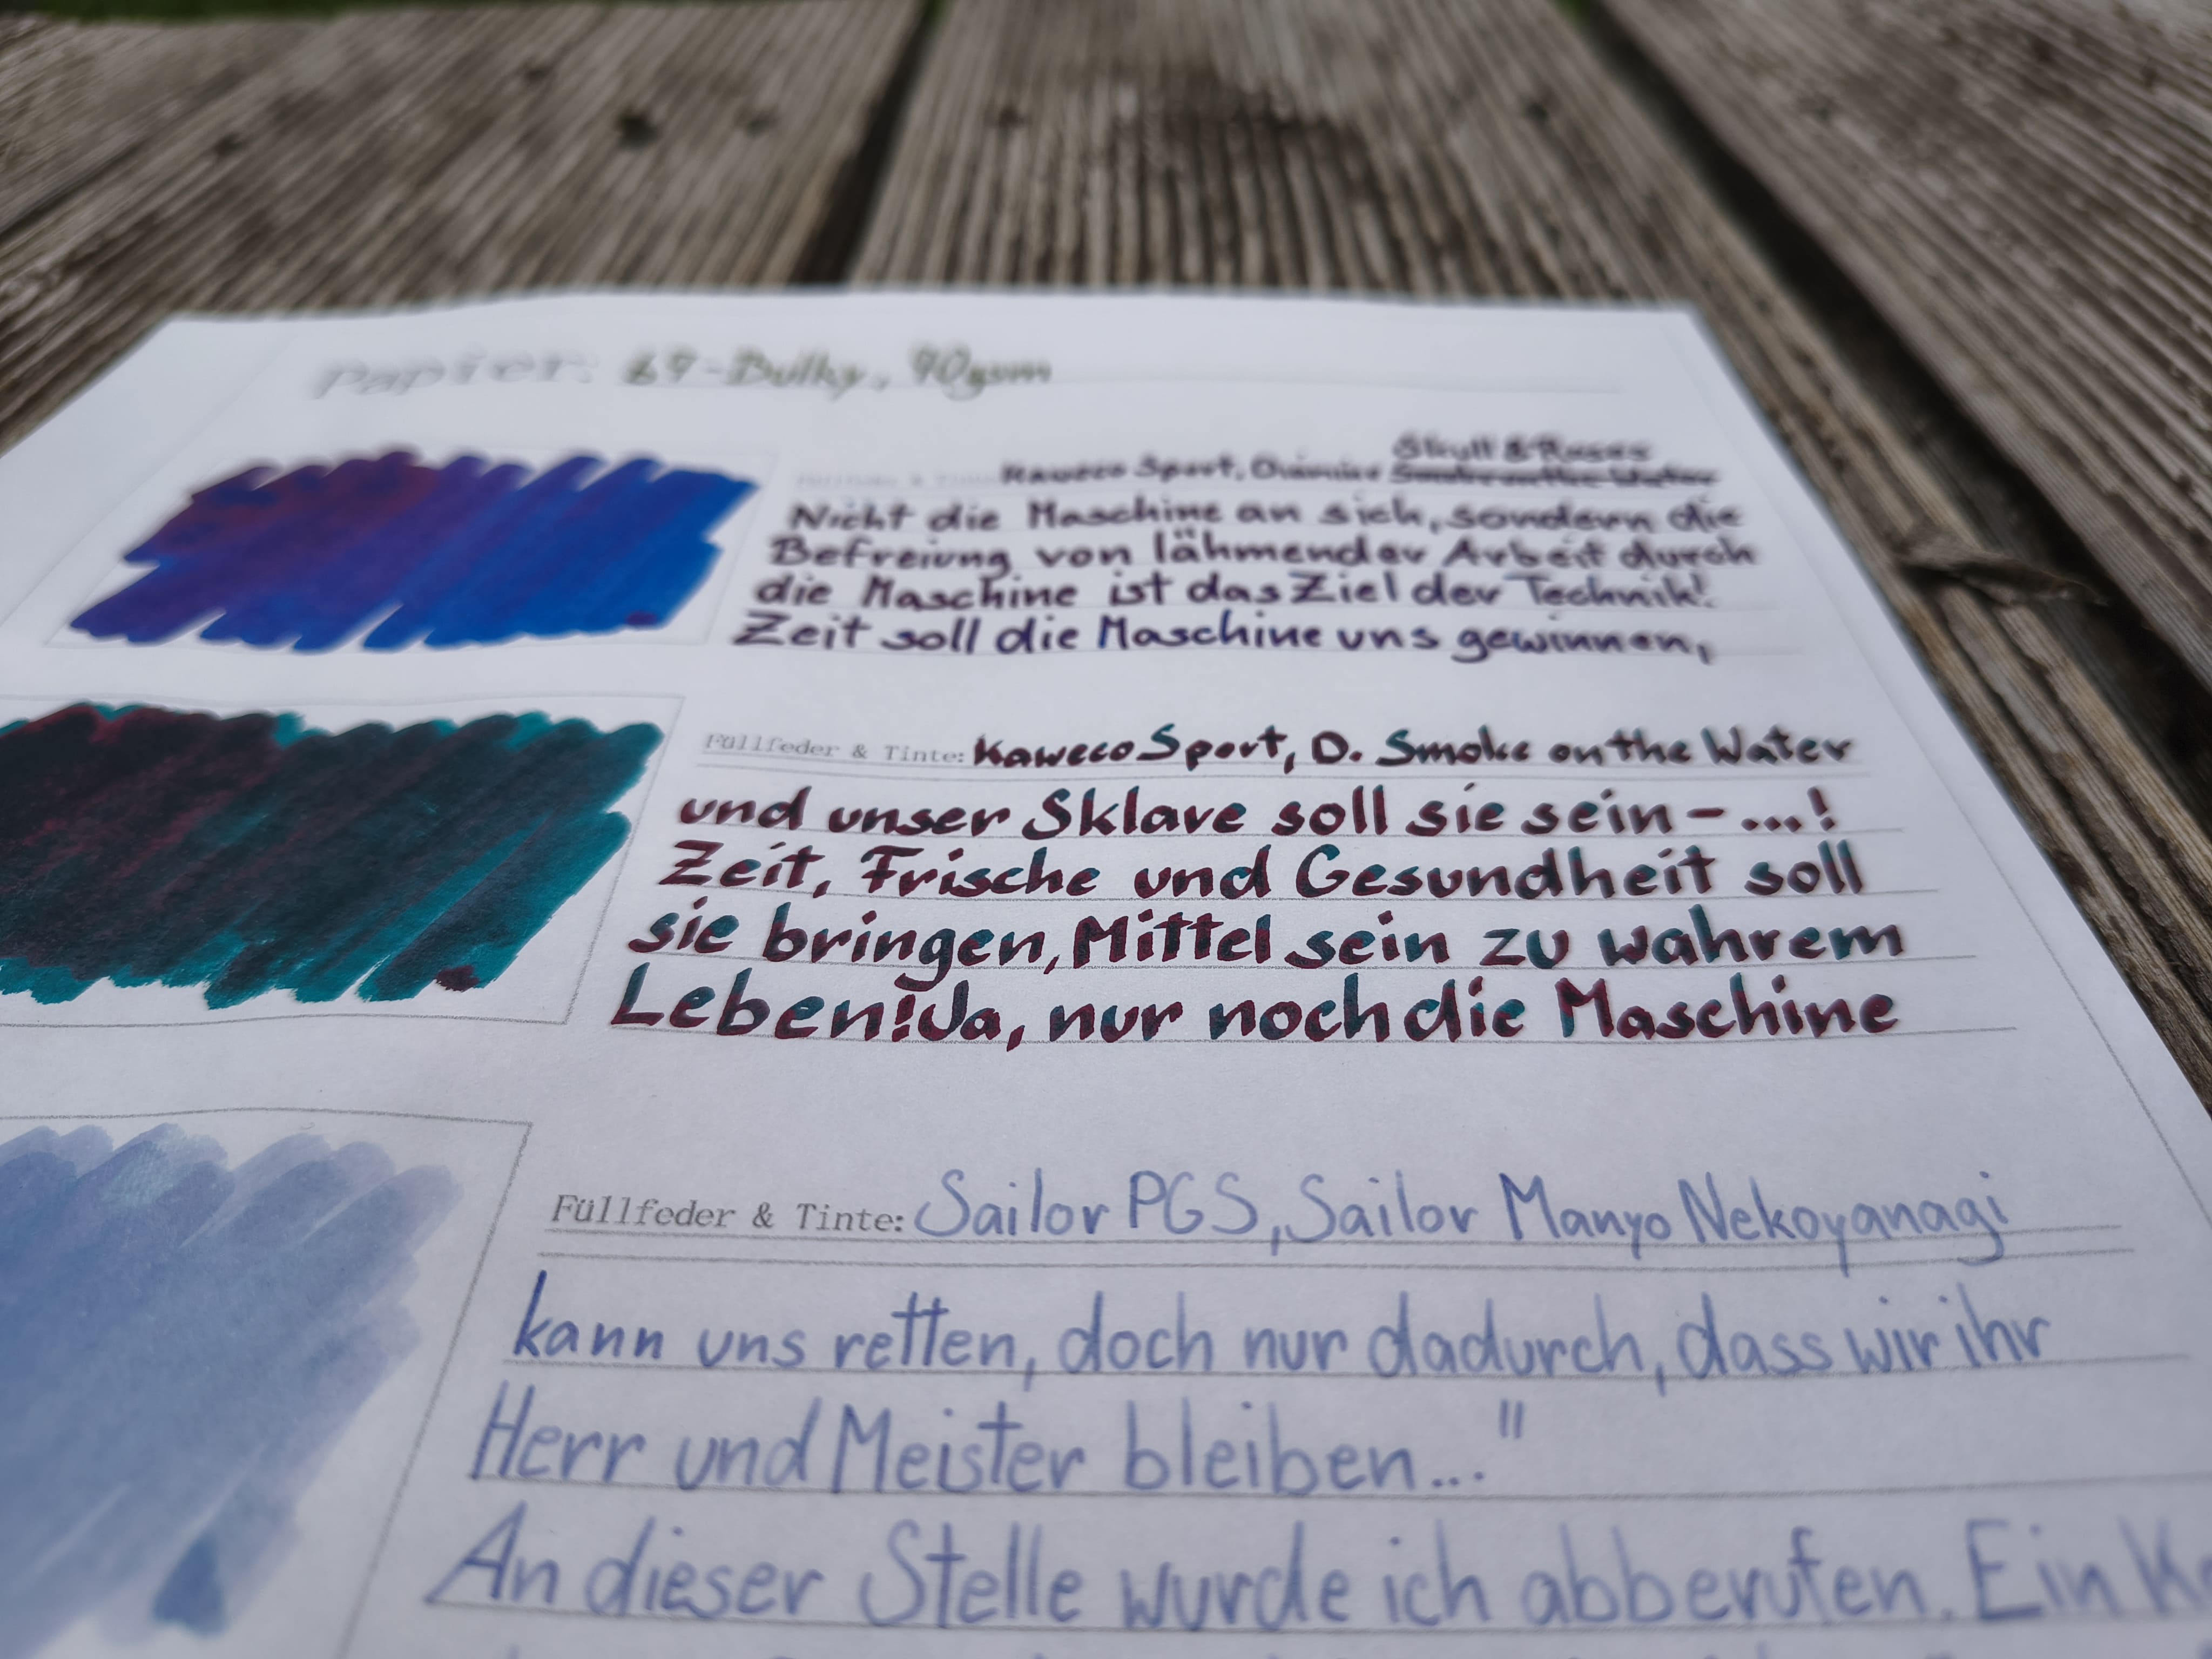 Papier: 69-Bulky, 90gsm
Skull & Roses
Kaweco Sport, Diamine Smoke on the Water
Nicht die Maschine an sich, sondern die
Befreiung von lähmender Arbeit durch
die Maschine ist das Ziel der Technik!
Zeit soll die Maschine uns gewinnen,
Füllfeder & Tinte: Kaweco Sport, D. Smoke on the Water
und unser Sklave soll sie sein-...!
Zeit, Frische und Gesundheit soll
sie bringen, Mittel sein zu wahrem
Leben! Ja, nur noch die Maschine
Füllfeder & Tinte: Sailor PGS, Sailor Manyo Nekoyanagi
kann uns retten, doch nur dadurch, dass wir ihr
Herr und Meister bleiben..."
An dieser Stelle wurde ich abberufen. Ein